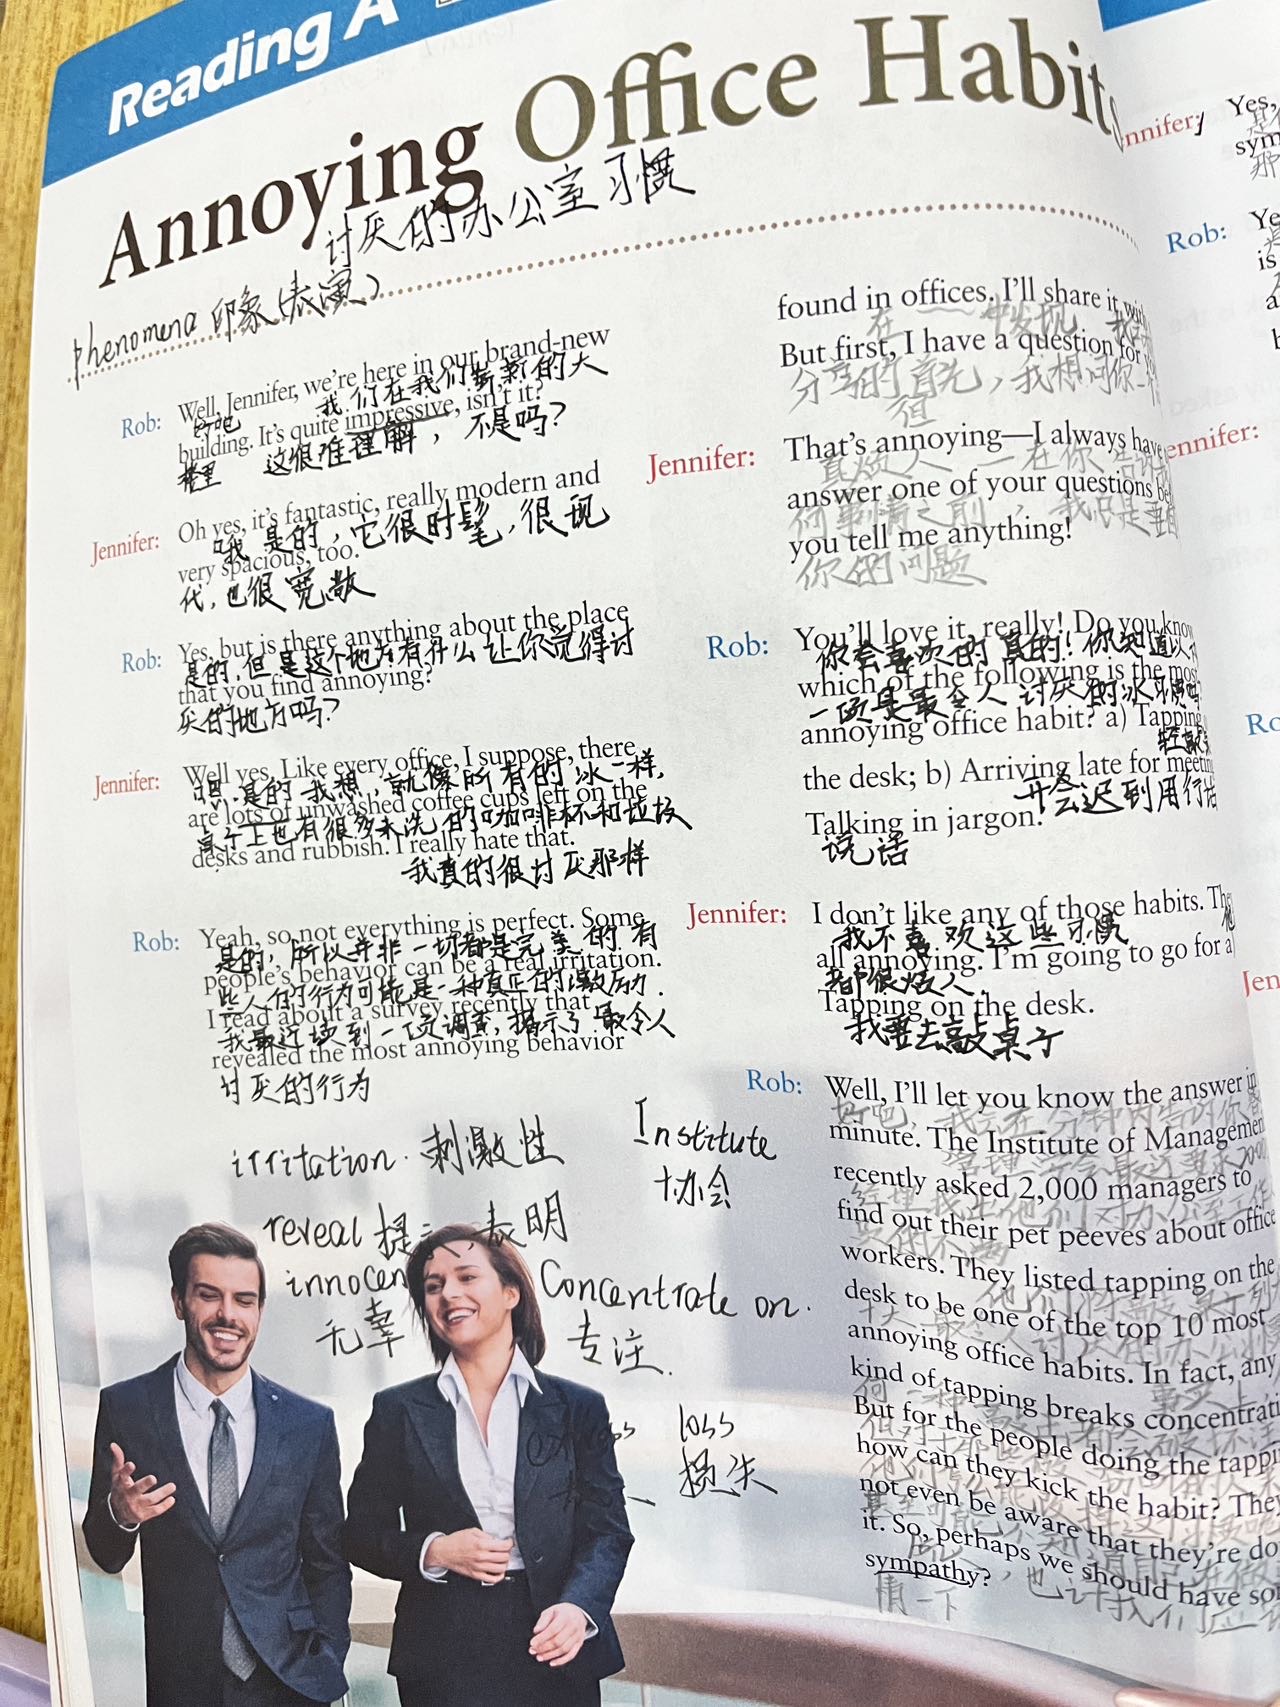 Reading A
Annoying Office Habits
讨厌的办公室习惯
phenomena 印象(表演)
Rob: Well, Jennifer, we're here in our brand-new
好吧 我们在我们崭新的大
building. It's quite impressive, isn't it?
楼里 这很难理解，不是吗?
Jennifer: Oh yes, it's fantastic, really modern and
哦 是的，它很时髦，很现
very spacious, too.
代，也很宽敞
Rob: Yes, but is there anything about the place
是的，但是这个地方有什么让你觉得讨
that you find annoying?
厌的地方吗?
Jennifer: Well yes. Like every office, I suppose, there
嗯.是的我想，就像所有的冰一样，
are lots of unwashed coffee cups left on the
桌子上也有很多未洗的咖啡杯和垃圾
desks and rubbish. I really hate that.
我真的很讨厌那样
Rob: Yeah, so not everything is perfect. Some
是的，所以并非一切都是完美的有
people's behavior can be a real irritation.
些人的行为可能是一种真正的激励.
I read about a survey recently that
我最近读到一项调查，揭示了最令人
revealed the most annoying behavior
讨厌的行为
irritation. 刺激性
Institute
协会
reveal 提示,表明
innocen
无辜
Concentrate on.
专注.
loss
损失
found in offices. I'll share it with
在 中发现
But first, I have a question for you
分享的首先，我想问你一
但
Jennifer: That's annoying—I always have
真烦人 一在你告诉我
answer one of your questions
何事情之前，我总是要回
you tell me anything!
你的问题
Rob: You'll love it, really! Do you know
你会喜欢的真的!你知道以下
which of the following is the most
一项是最令人讨厌的冰习惯吗
annoying office habit? a) Tapping
轻敲
the desk; b) Arriving late for meeting
开会迟到用行话
Talking in jargon.
说话
Jennifer: I don't like any of those habits. The
我不喜欢这些习惯 他
all annoying. I'm going to go for a)
都很烦人.
Tapping on the desk.
我要去敲桌子
Rob: Well, I'll let you know the answer in
好吧，我会在分钟内告诉你
minute. The Institute of Managemen
管理学会最近要求2000
recently asked 2,000 managers to
经理找出他们对办公室工作
find out their pet peeves about office
workers. They listed tapping on the
他们列敲桌子
desk to be one of the top 10 most
十大最令人讨厌的办公习惯
annoying office habits. In fact, any
事实上
kind of tapping breaks concentrati
But for the people doing the tappi
how can they kick the habit? They
not even be aware that they're do
it. So, perhaps we should have so
，也许我们应该
sympathy?
情一下
nnifer: Yes,
sym
那
Rob: Ye
is
a
b
ennifer:
Ro
Jen